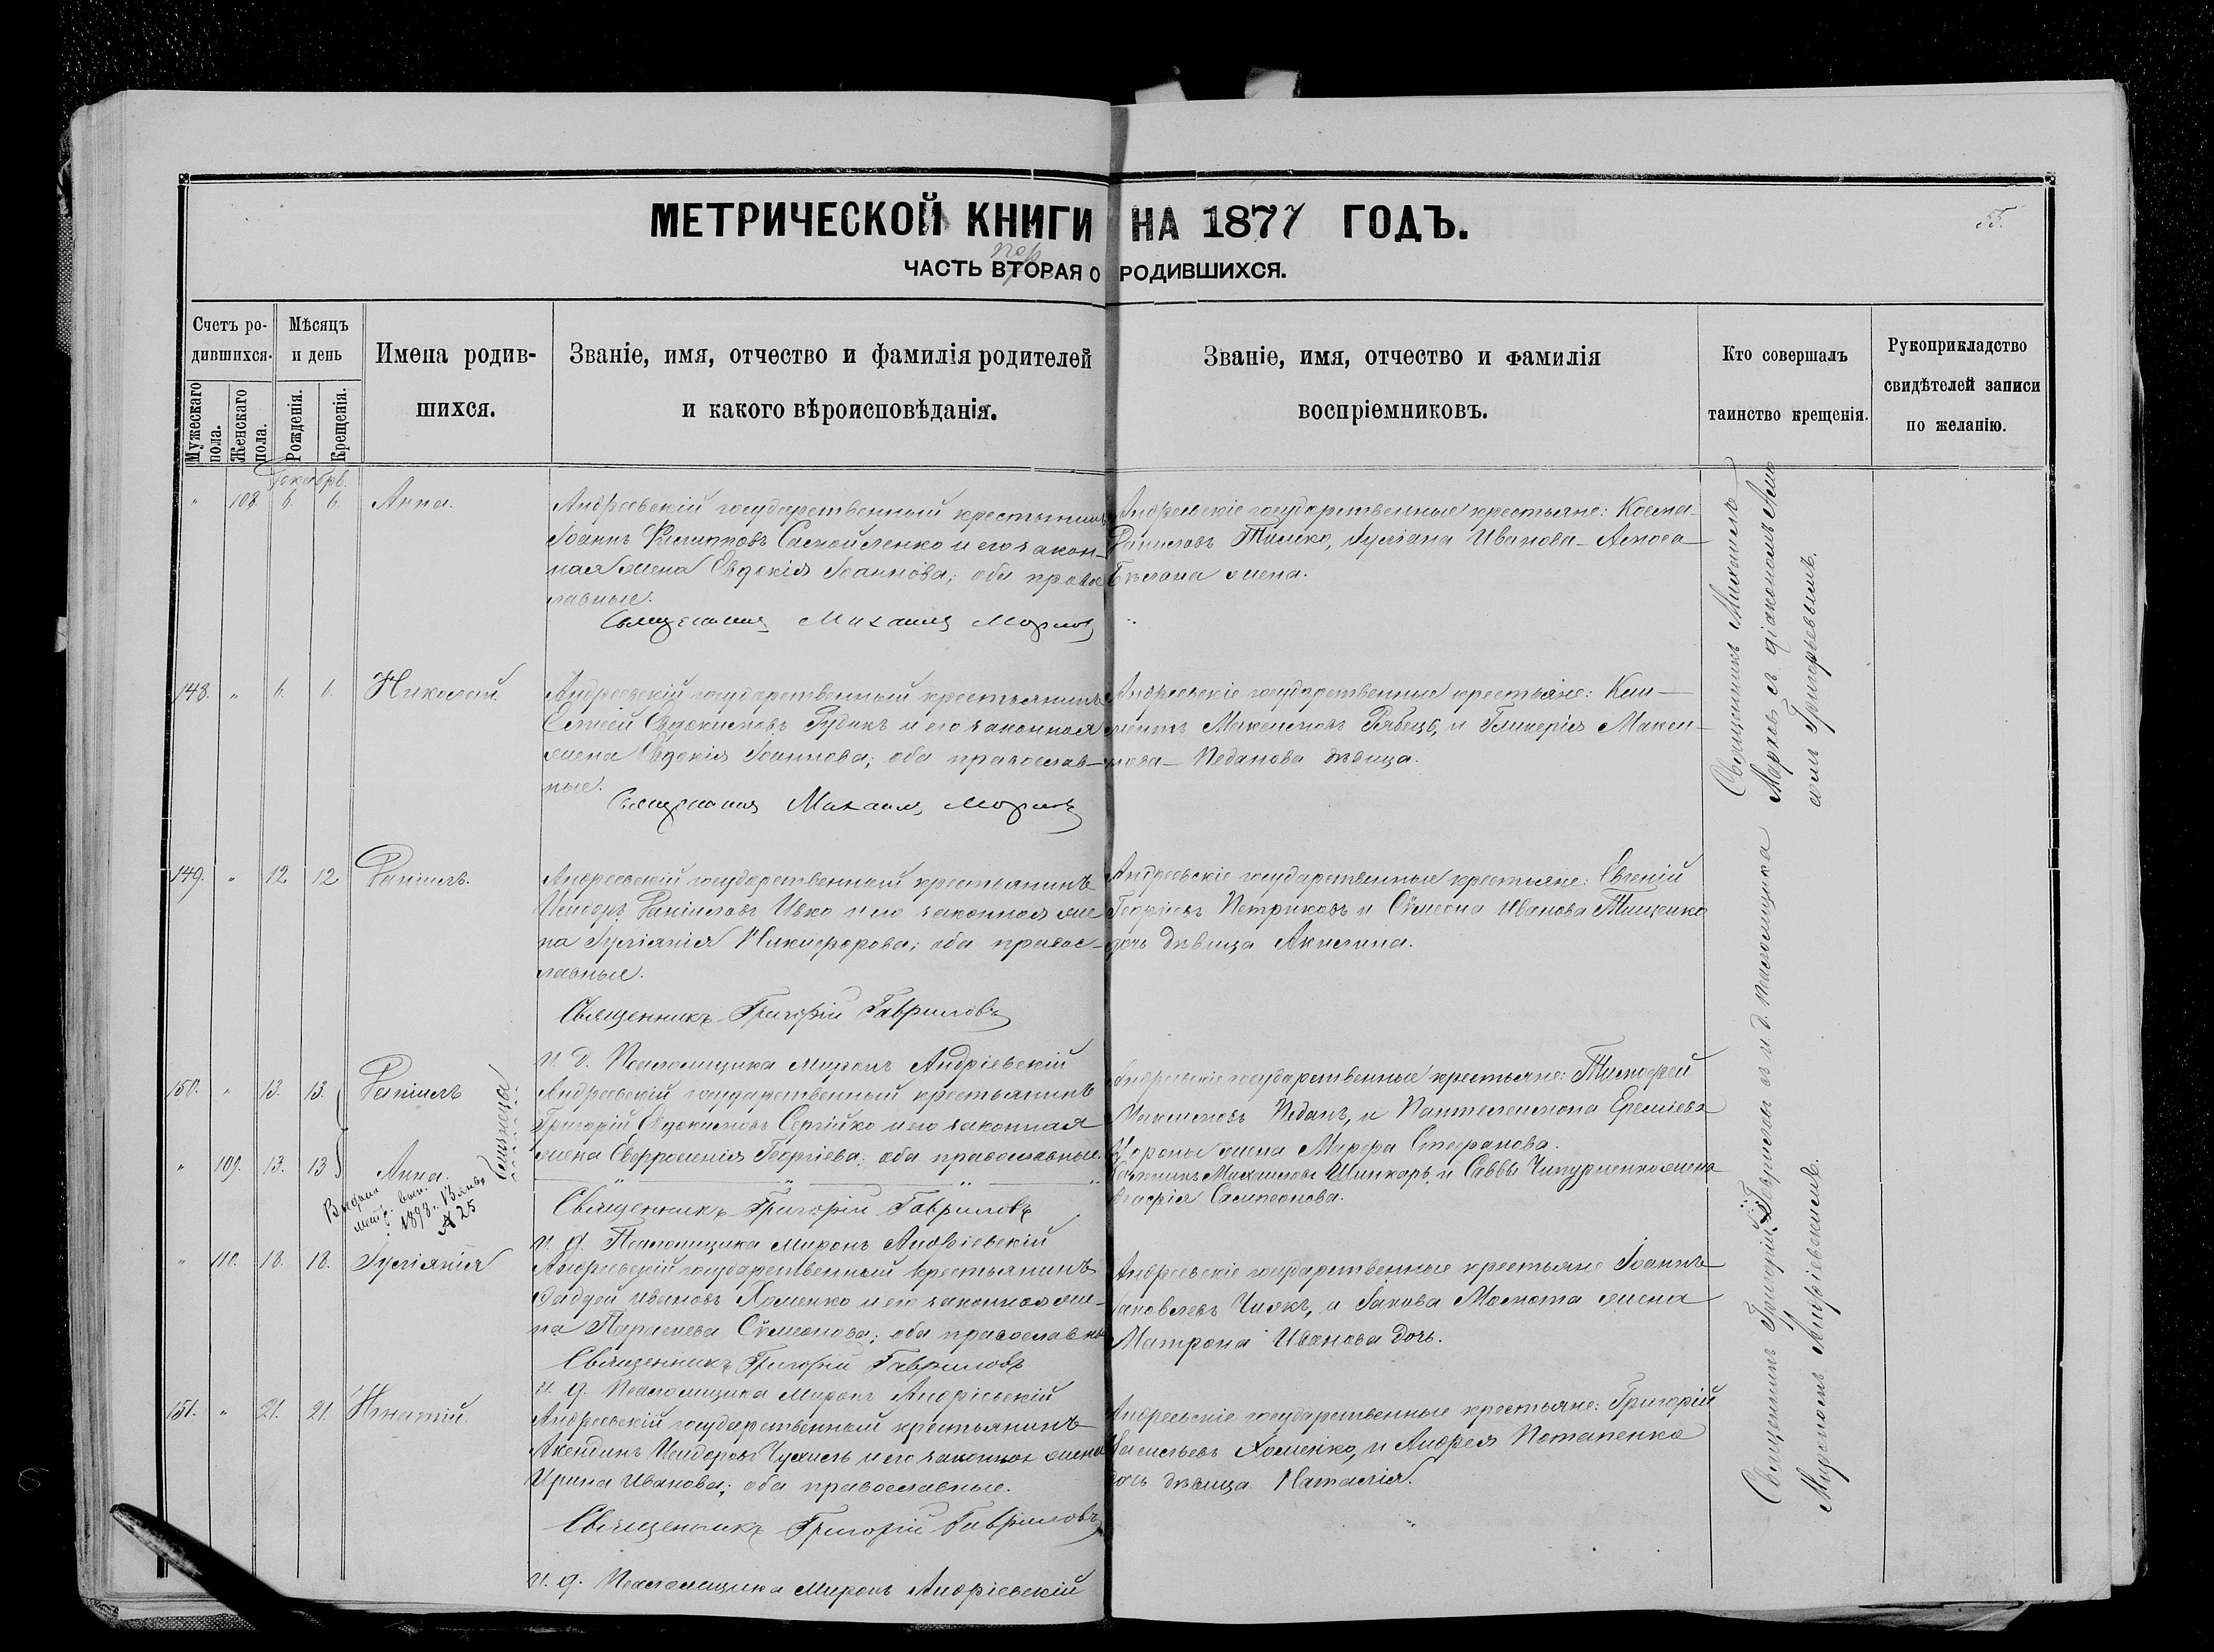 МЕТРИЧЕСКОЙ КНИГИ НА 1877 ГОДЪ.
55.
пер
ЧАСТЬ ВТОРАЯ О РОДИВШИХСЯ.
Счетъ родившихся.
Мужескаго пола.
Женскаго пола.
Мѣсяцъ и день
Рожденія.
Крещенія.
Имена родившихся.
Званіе, имя, отчество и фамилія родителей
и какого вѣроисповѣданія.
Званіе, имя, отчество и фамилія
воспріемниковъ.
Кто совершалъ
таинство крещенія.
Рукоприкладство
свидѣтелей записи
по желанію.
Декабрь.
" 108. 6. 6. Анна.
Андреевскій государственный крестьянинъ
Іоаннъ Филипповъ Самойленко и его закон-
ная жена Евдокія Іоаннова; оба правос
лавные.
Священникъ Михаилъ
Андреевскіе государственные крестьяне: Косма
Даниловъ Тимко, Іуліана Иванова
жена.
148. " 6. 6. Николай.
Андреевскій государственный крестьянинъ
Елисей Евдокимовъ Рудикъ и его законная
жена Евдокія Іоаннова; оба православ-
ные.
Священникъ Михаилъ
Андреевскіе государственные крестьяне: Кли-
ментъ Максимовъ Рябецъ, и Гликерія Макси-
мова Педанова дѣвица.
Священникъ Михаилъ
съ діакономъ
Григорьевымъ.
149. " 12 12 Даніилъ.
Андреевскій государственный крестьянинъ
Исидоръ Даніиловъ Ивко и его законная же
на Іуліанія Никифорова; оба правос-
лавные.
Священникъ Григорій Гавриловъ
и. д. Псаломщика Миронъ Андріевскій
Андреевскіе государственные крестьяне: Евгеній
Георгіевъ Петриковъ и Сѵмеона Иванова Тищенко
дочь дѣвица Акилина.
150. " 13. 13. Даніилъ
" 109. 13. 13 Анна.
близнецы
Выдана
мет. вып.
1898. 13 янв
№ 25
Андреевскій государственный крестьянинъ
Григорій Евдокимовъ Сергійко и его законная
жена Евфросинія Георгіева; оба православные.
Священникъ Григорій Гавриловъ
и. д. Псаломщика Миронъ Андріевскій
Андреевскіе государственные крестьяне: Тимофей
Максимовъ Педанъ, и Пантелеимона Еремѣева
жена Марфа Стефанова.
Михаиловъ Шинкарь, и Саввы Чипурненко жена
Сампсонова.
" 110. 18. 18. Іуліанія
Андреевскій государственный крестьянинъ
Фаддей Ивановъ Хоменко и его законная же-
на Параскева Сѵмеонова; оба православные
Священникъ Григорій Гавриловъ
и. д. Псаломщика Миронъ Андріевскій
Андреевскіе государственные крестьяне Іоаннъ
Яковлевъ Чижъ, и Іакова Мамота жена
Матрона Иванова дочь.
151. " 21. 21. Игнатій.
Андреевскій государственный крестьянинъ
Акиндинъ Исидоровъ и его законная жена
Ирина Иванова; оба православные.
Священникъ Григорій Гавриловъ
и. д. Псаломщика Миронъ Андріевскій
Андреевскіе государственные крестьяне: Григорій
Васильевъ Хоменко, и Андрея Потапенка
дочь дѣвица Наталія.
Священникъ Григорій Гавриловъ съ и. д. Псаломщика
Мирономъ Андріевскимъ.